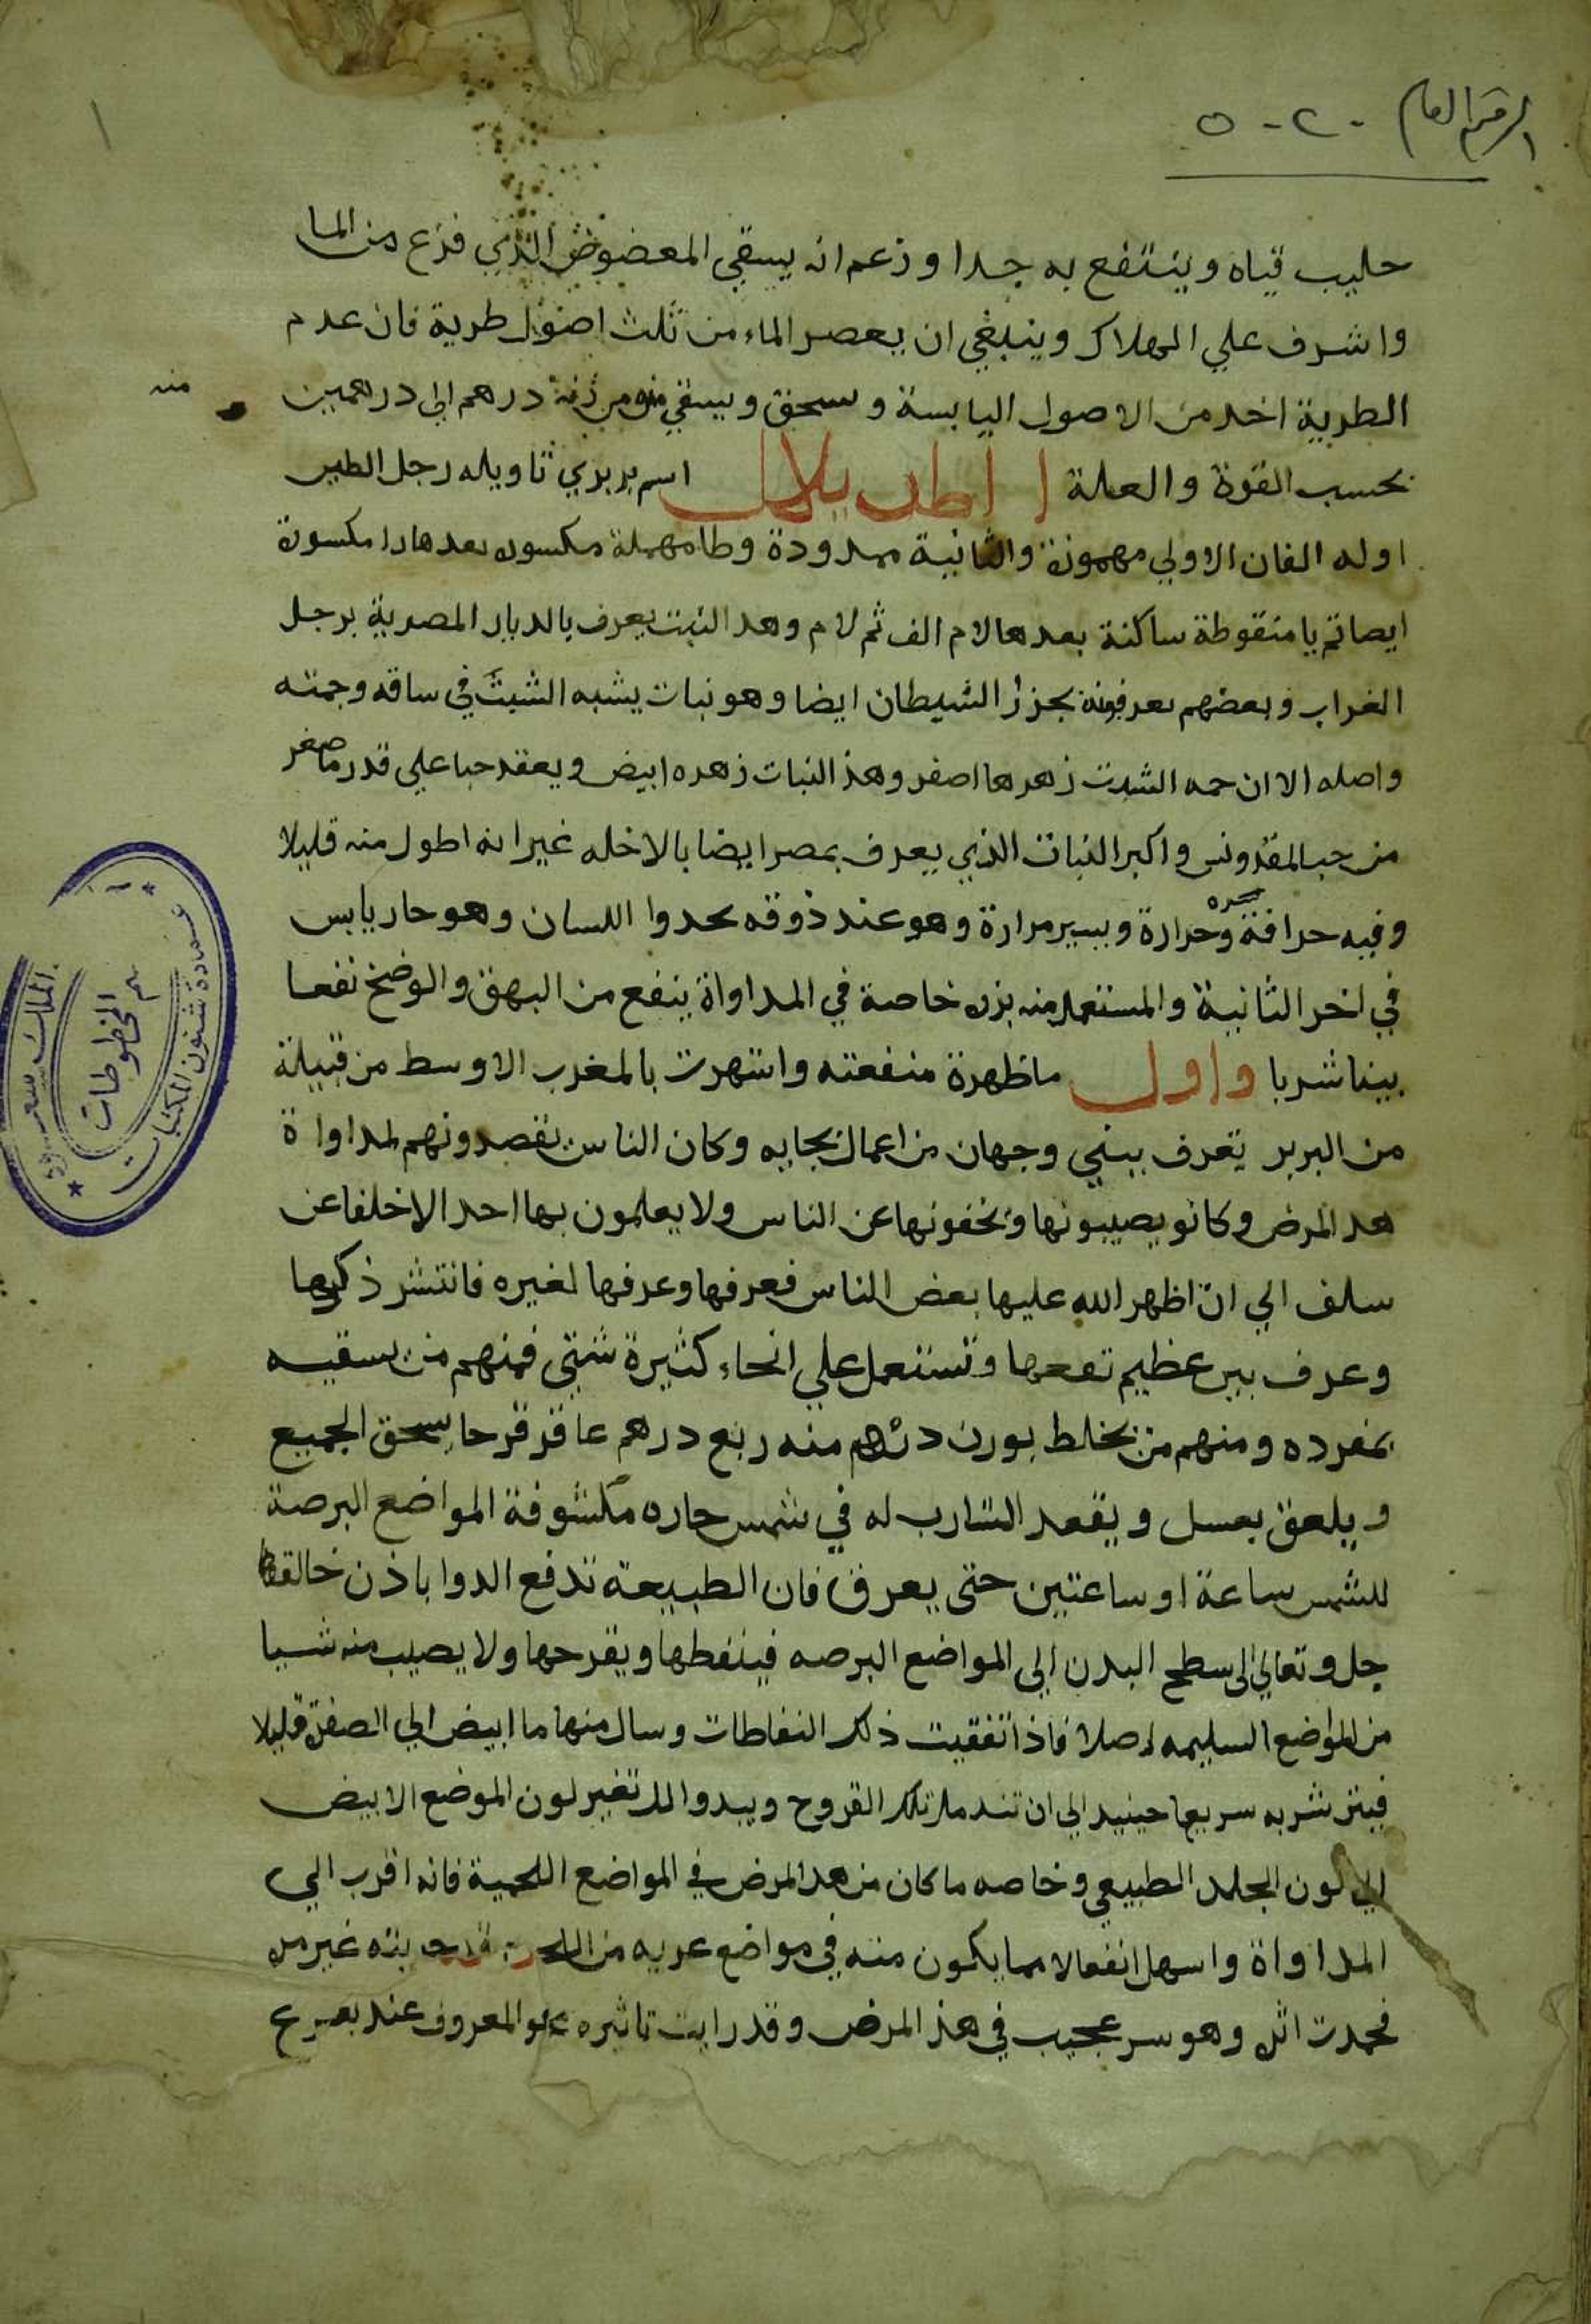 الرقم العام ٥٠٢٠
١
حليب قياه وينتفع به جدا وزعم انه يسقي المعضوض الذي فزع من الما
واشرف علي الهلاك وينبغي ان يعصر الماء من ثلث اصول طرية فان عدم
الطرية اخد من الاصول اليابسة وسحق ويسقي منه من زنة درهم الي درهمين
منه
بحسب القوة والعلة ااطريلال اسم بربري تاويله رجل الطير
اوله الفان الاولي مهموزة والثانية ممدودة وطا مهملة مكسوره بعدها را مكسورة
ايصا ثم يا منقوطة ساكنة بعدها لام الف ثم لام وهدا النبت يعرف بالديار المصرية برجل
الغراب وبعضهم يعرفونه بجزر الشيطان ايضا وهو نبات يشبه الشبث في ساقه وجمته
واصله الا ان جمه الشبت زهرها اصفر وهذا النبات زهره ابيض ويعقد حبا علي قدر ما صغر
من حب المقدونس واكبر النبات الذي يعرف بمصر ايضا بالاخله غير انه اطول منه قليلا
وفيه حرافة وحرارة ويسير مرارة وهو عند ذوقه يحدوا اللسان وهو حار يابس
في اخر الثانية والمستعمل منه بزره خاصة في المداواة ينفع من البهق والوضح نفعا
بينا شربا واول ما ظهرة منفعته واشهرت بالمغرب الاوسط من قبيلة
من البربر تعرف ببني وجهان من اعمال بجايه وكان الناس يقصدونهم لمداواة
هدا المرض وكانو يصيبونها ويخفونها عن الناس ولا يعلمون بها احد الا خلفا عن
سلف الي ان اظهر الله عليها بعض الناس فعرفها وعرفها لغيره فانتشر ذكرها
وعرف بين عظيم نفعها وتستعمل علي انحاء كثيرة شتي فمنهم من يسقيه
بمفرده ومنهم من يخلط بوزن درهم منه ربع درهم عاقر قرحا يسحق الجميع
ويلعق بعسل ويقعد الشارب له في شمس حاره مكشوفة المواضع البرصة
للشمس ساعة او ساعتين حتي يعرق فان الطبيعة تدفع الدوا باذن خالقها
جل وتعالي الي سطح البدن الي المواضع البرصه فينفطها ويقرحها ولا يصيب منه شيا
من المواضع السليمه اصلا فاذا تفقيت ذلك النفاطات وسال منها ما ابيض الي الصفرة قليلا
فيترك شربه سريعا حينيد الي ان تندمل تلك القروح ويبدوا لك تغير لون الموضع الابيض
الي لون الجلد الطبيعي وخاصه ما كان من هدا المرض في المواضع اللحمية فانه اقرب الي
المداواة واسهل انفعالا مما يكون منه في مواضع عريه من اللحم جربته غير مره
فحمدت اثره وهو سر عجيب في هذا المرض وقد رايت تاثيره عند
عمادة شئون المكتبات
قسم المخطوطات
الملك سعود